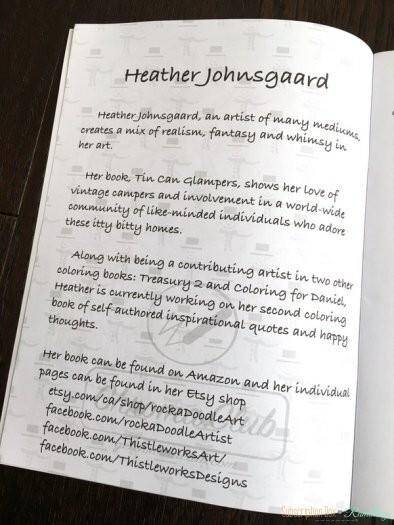 Heather Johnsgaard
Heather Johnsgaard, an artist of many mediums,
creates a mix of realism, fantasy and whimsy in
her art.
Her book, Tin Can Glampers, shows her love of
vintage campers and involvement in a world-wide
community of like-minded individuals who adore
these itty bitty homes.
Along with being a contributing artist in two other
coloring books: Treasury 2 and Coloring for Daniel,
Heather is currently working on her second coloring
book of self-authored inspirational quotes and happy
thoughts.
Her book can be found on Amazon and her individual
pages can be found in her Etsy shop
etsy.com/ca/shop/rockaDoodleArt
facebook.com/rockaDoodleArtist
facebook.com/ThistleworksArt/
facebook.com/ThistleworksDesigns